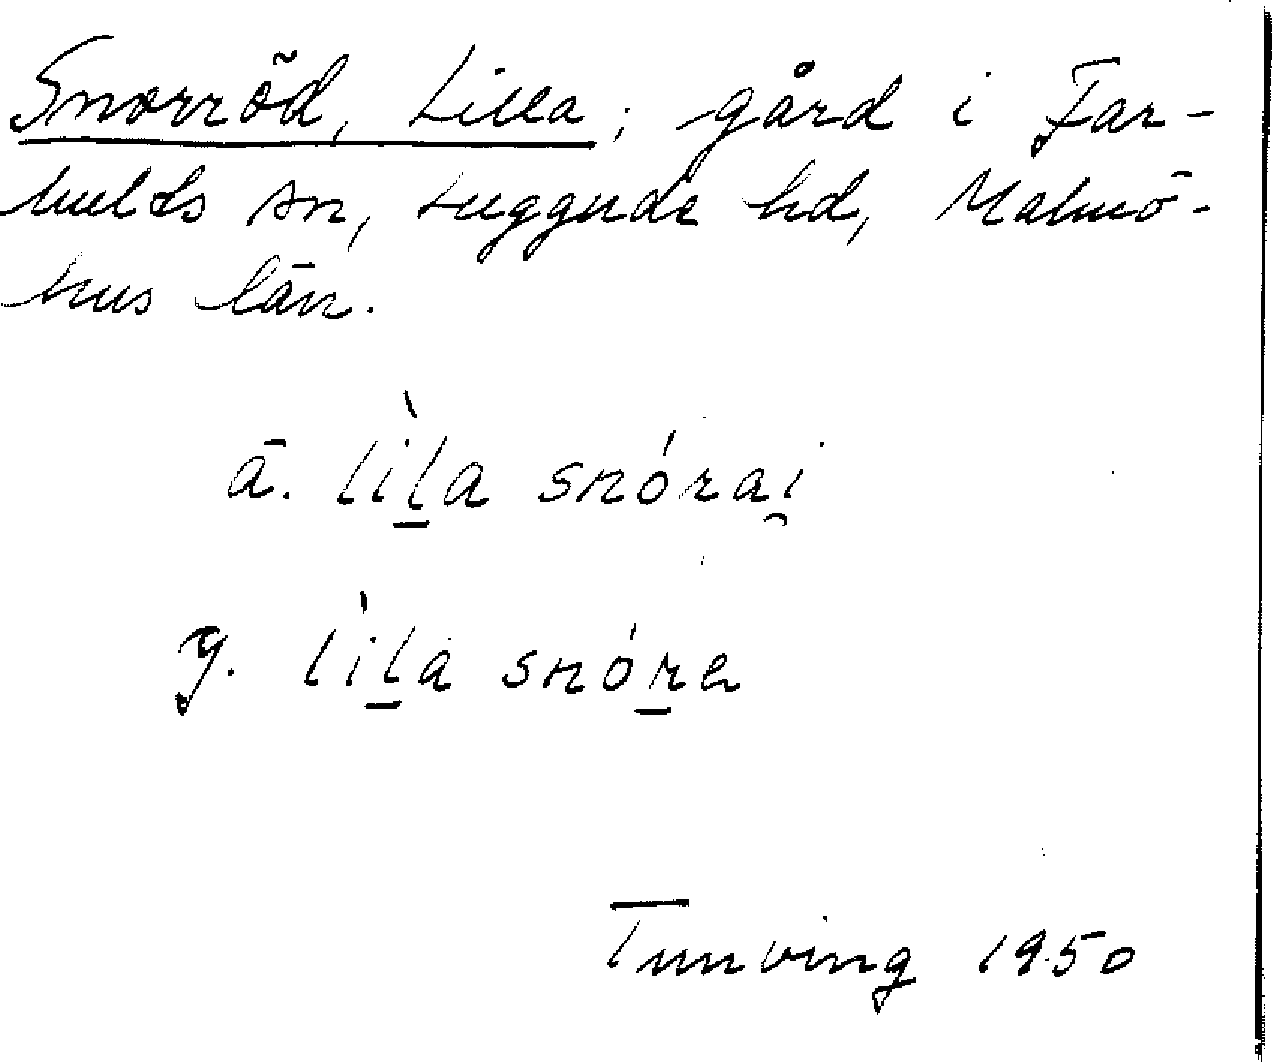 Snorröd, Lilla; gård i Far-
hults sn, Luggude hd, Malmö-
hus län.
ä. lìl̲a snórai̯
y. lìl̲a snór̲e
Tunving 1950